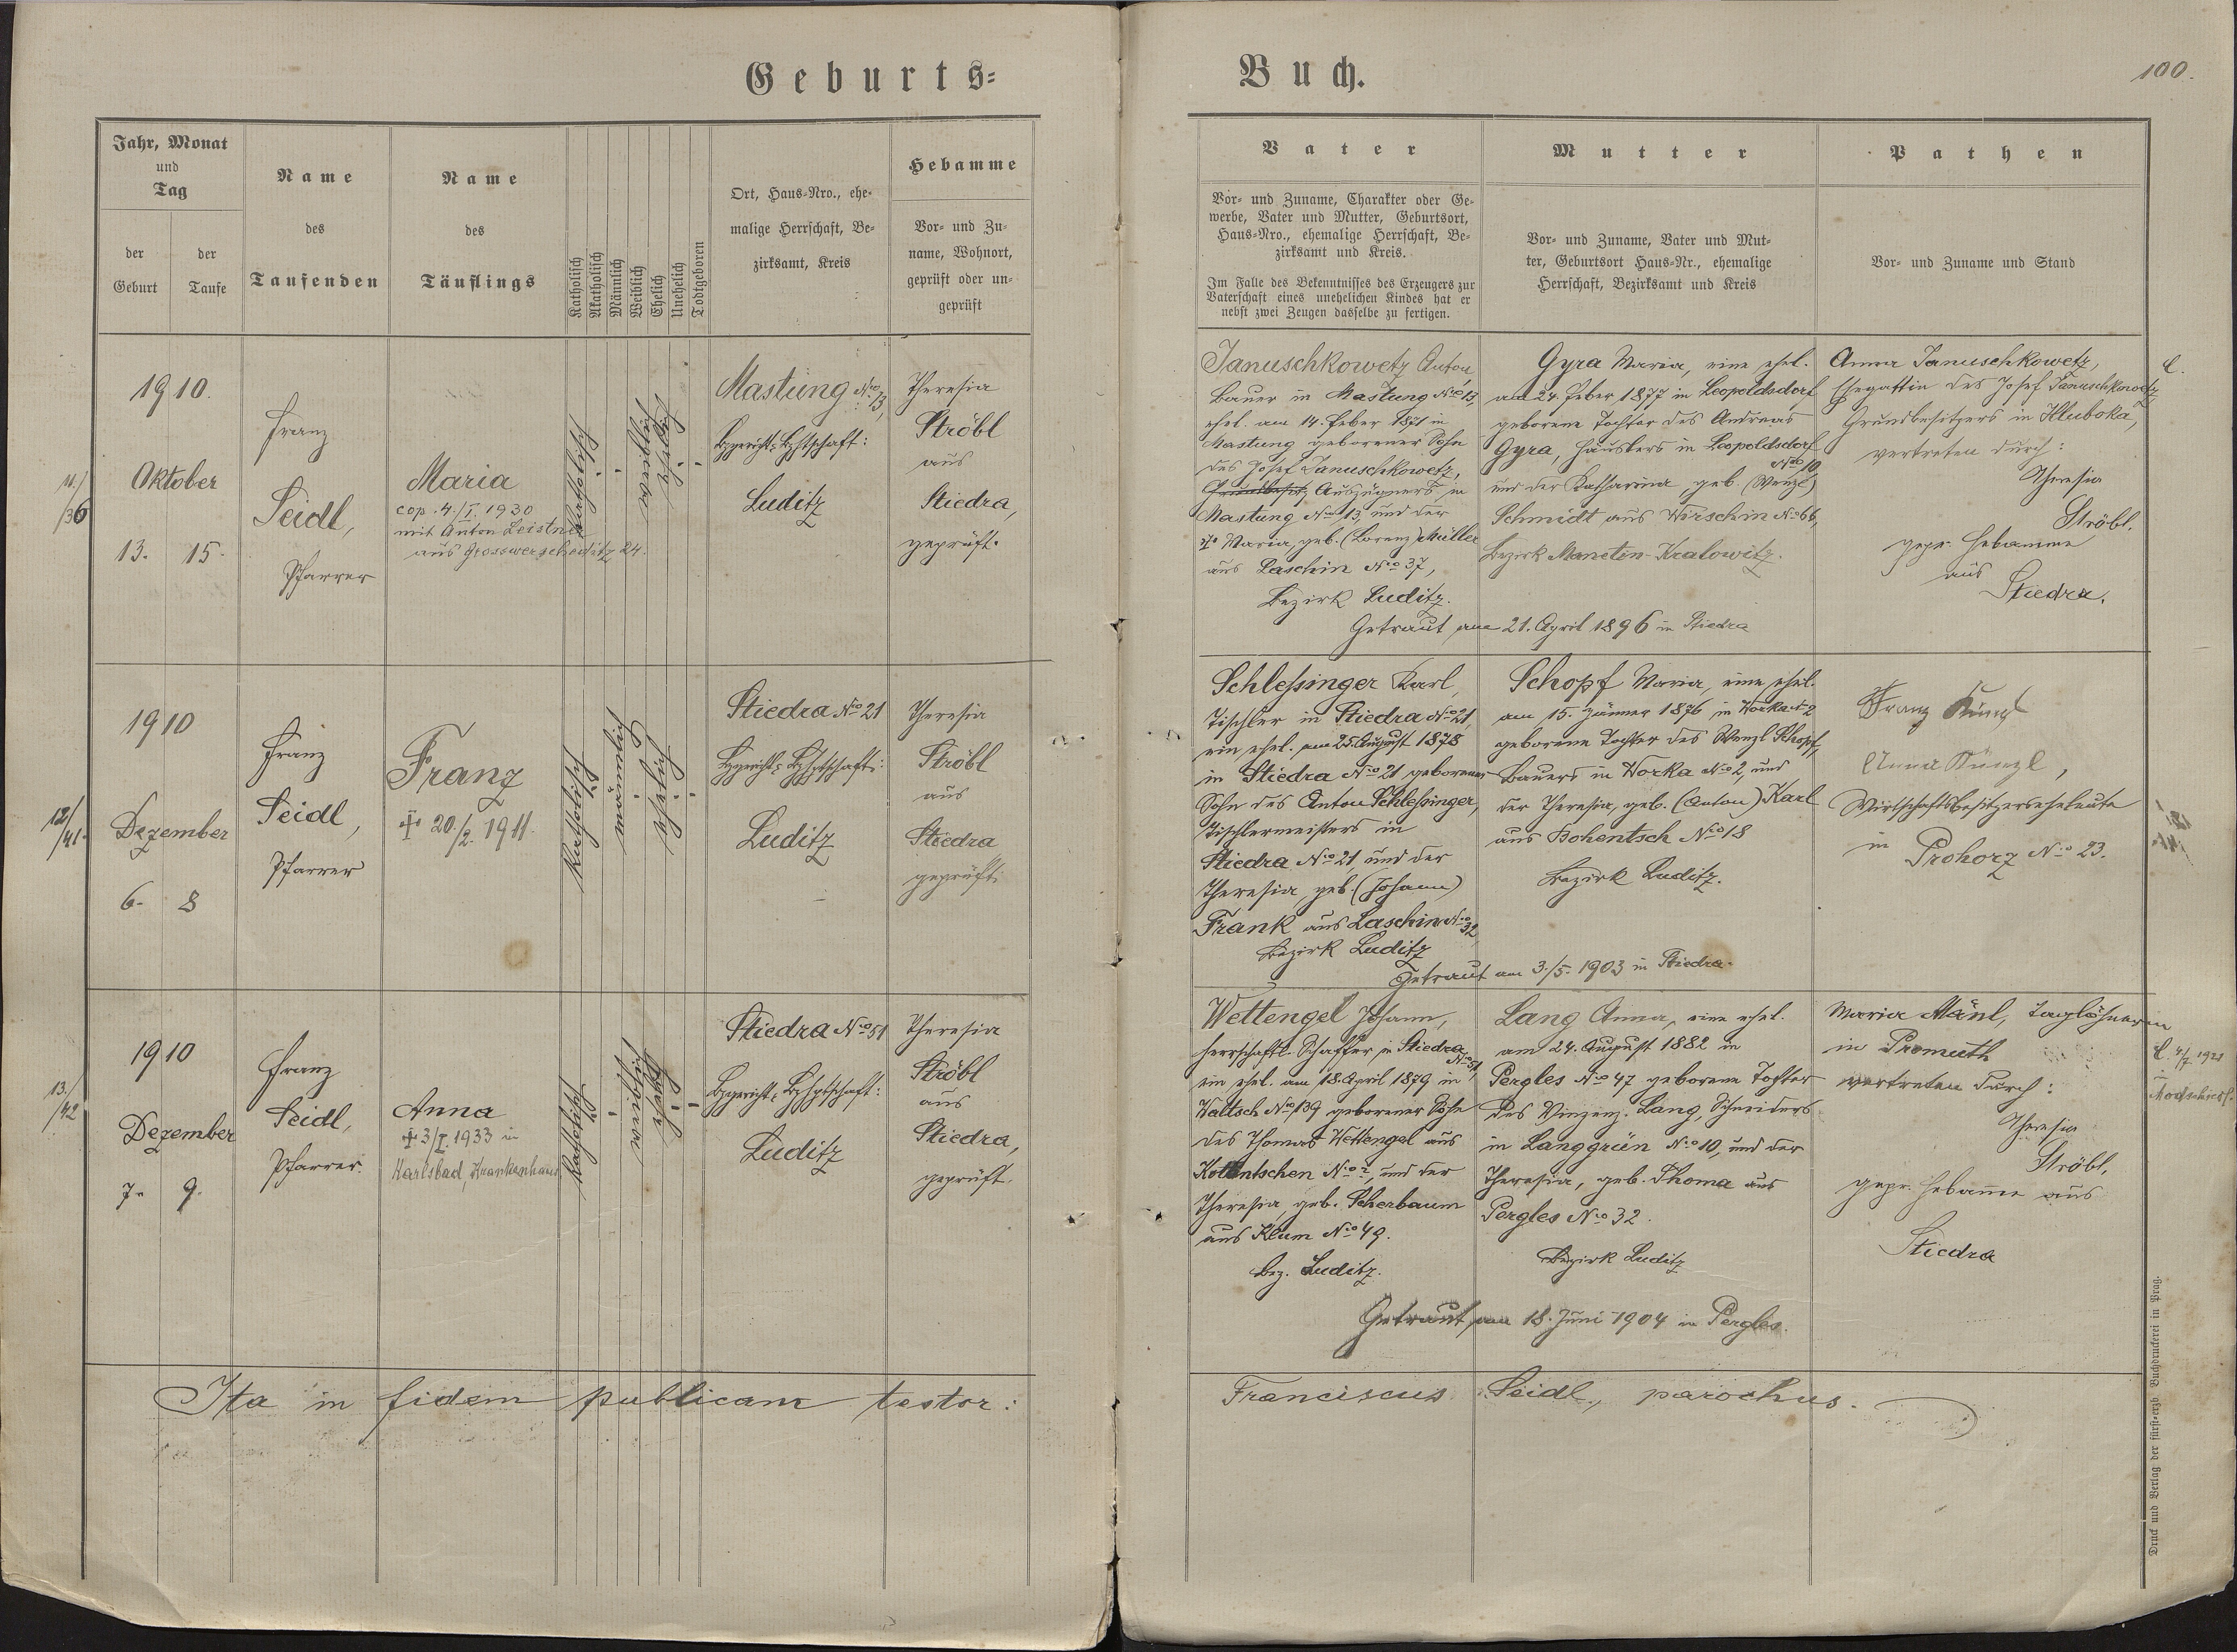 Geburts=
Buch.
100.
Jahr, Monat
und
Tag
der
Geburt
der
Taufe
Name
des
Taufenden
Name
des
Täuflings
Katholisch
Akatholisch
Männlich
Weiblich
Ehelich
Unehelich
Todtgeboren
Ort, Haus=Nro., ehe=
malige Herrschaft, Be=
zirksamt, Kreis
Hebamme
Vor= und Zu=
name, Wohnort,
geprüft oder un=
geprüft
Vater
Vor= und Zuname, Charakter oder Ge=
werbe, Vater und Mutter, Geburtsort,
Haus=Nro., ehemalige Herrschaft, Be=
zirksamt und Kreis.
Im Falle des Bekenntnisses des Erzeugers zur
Vaterschaft eines unehelichen Kindes hat er
nebst zwei Zeugen dasselbe zu fertigen.
Mutter
Vor= und Zuname, Vater und Mut=
ter, Geburtsort Haus=Nr., ehemalige
Herrschaft, Bezirksamt und Kreis
Pathen
Vor= und Zuname und Stand
11./
/36
1910.
Oktober
13. 15.
Franz
Seidl,
Pfarrer
Maria
cop. 4./I. 1930
mit Anton Leistner
aus Grosswerscheditz 24.
katholisch
weiblich
ehelich
Mastung No 13,
Bzgericht= Bzhptschaft:
Luditz
Theresia
Ströbl
aus
Stiedra,
geprüft.
Januschkowetz Anton
Bauer in Mastung No 13,
ehel. am 14. Feber 1871 in
Mastung geborener Sohn
des Josef Januschkowetz,
Auszügners in
Mastung No 13, und der
Maria, geb. (Lorenz) Müller
aus Laschin No 37,
Bezirk Luditz.
Gyra Maria, eine ehel.
am 24. Feber 1877 in Leopoldsdorf
geborene Tochter des Andreas
Gyra, Häuslers in Leopoldsdorf
No 10
und der Katharina geb. (Wenzl)
Schmidt aus Wirschin No 66,
Bezirk Manetin-Kralowitz.
Getraut am 21. April 1896 in Stiedra
Anna Januschkowetz,
Ehegattin des Josef Januschkowetz
Grundbesitzers in Hluboka,
vertreten durch:
Theresia
Ströbl.
gepr. Hebamme
aus
Stiedra.
12/
/41.
1910
Dezember
6. 8
Franz
Seidl,
Pfarrer
Franz
✝ 20./2. 1911.
katholisch
männlich
ehelich
Stiedra No 21
Bzgericht= Bzhptschaft:
Luditz
Theresia
Ströbl
aus
Stiedra
geprüft.
Schlessinger Karl,
Tischler in Stiedra No 21,
ein ehel. am 25. August 1878
in Stiedra No 21 geborener
Sohn des Anton Schlessinger,
Tischlermeisters in
Stiedra No 21, und der
Theresia, geb. (Johann)
Frank aus Laschin No 32,
Bezirk Luditz
Schopf Maria, eine ehel.
am 15. Jänner 1876 in Worka No 2
geborene Tochter des Wenzl Schopf,
Bauers in Worka No 2, und
der Theresia, geb. (Anton) Karl
aus Bohentsch No 18
Bezirk Luditz.
Getraut am 3./5. 1903 in Stiedra.
Franz Künzl
Anna Künzl,
Wirtschaftsbesitzerseheleute
in Prohorz No 23.
13./
/42
1910
Dezember
7. 9.
Franz
Seidl,
Pfarrer.
Anna
✝ 3/I. 1933 in
Karlsbad, Krankenhaus
katholisch
weiblich
ehelich
Stiedra No 51
Bzgericht= Bzhptschaft:
Luditz
Theresia
Ströbl
aus
Stiedra,
geprüft.
Wettengel Johann,
herrschaftl. Schaffer in Stiedra
No 51,
ein ehel. am 18. April 1879 in
Waltsch No 139 geborener Sohn
des Thomas Wettengel aus
No 2, und der
Theresia, geb. Scherbaum
aus Klum No 49.
Bez. Luditz.
Lang Anna, eine ehel.
am 24. August 1882 in
Pergles No 47 geborene Tochter
des Vinzenz Lang, Schneiders
in Langgrün No 10, und der
Theresia, geb. Thoma aus
Pergles No 32.
Bezirk Luditz
Getraut am 18. Juni 1904 in Pergles.
Maria Mänl, Taglöhnerin
in Promuth
vertreten durch:
Theresia
Ströbl,
gepr. Hebamme aus
Stiedra
4/7 1921
Ita in fidem publicam testor:
Franciscus Seidl, parochus.
Druck und Verlag der fürst=erzb. Buchdruckerei in Prag.